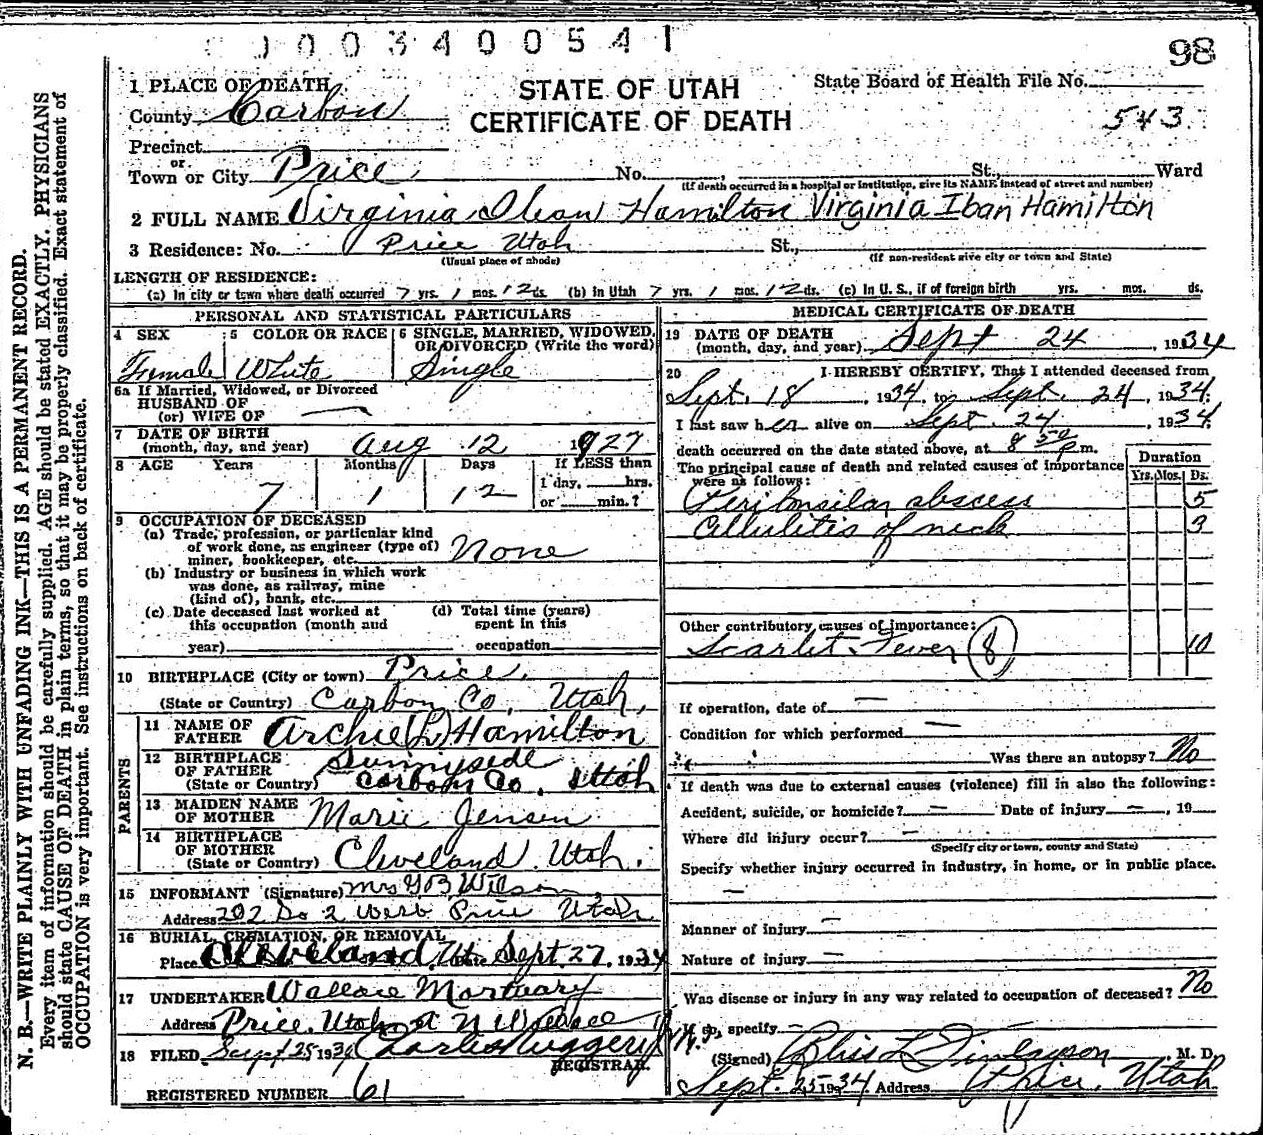 0003400541
98
1 PLACE OF DEATH
STATE OF UTAH
CERTIFICATE OF DEATH
State Board of Health File No.
543
County Carbon
Precinct
or
Town or City Price No. , St., Ward
(If death occurred in a hospital or institution, give its NAME instead of street and number)
2 FULL NAME Virginia Iban Hamilton Virginia Iban Hamilton
3 Residence: No. Price Utah St.,
(Usual place of abode) (If non-resident give city or town and State)
LENGTH OF RESIDENCE:
(a) In city or town where death occurred 7 yrs. 1 mos. 12 ds. (b) in Utah 7 yrs. 1 mos. 12 ds. (c) In U.S., if of foreign birth yrs. mos. ds.
PERSONAL AND STATISTICAL PARTICULARS
4 SEX 5 COLOR OR RACE 6 SINGLE, MARRIED, WIDOWED, OR DIVORCED (Write the word)
Female White Single
6a If Married, Widowed, or Divorced
HUSBAND OF
(or) WIFE OF —
7 DATE OF BIRTH
(month, day, and year) Aug 12 1927
8 AGE Years Months Days If LESS than
1 day, hrs.
or min.?
7 1 12
9 OCCUPATION OF DECEASED
(a) Trade, profession, or particular kind
of work done, as engineer (type of)
miner, bookkeeper, etc. None
(b) Industry or business in which work
was done, as railway, mine
(kind of), bank, etc.
(c) Date deceased last worked at (d) Total time (years)
this occupation (month and spent in this
year) occupation
10 BIRTHPLACE (City or town) Price,
(State or Country) Carbon Co, Utah,
PARENTS
11 NAME OF
FATHER Archie (L) Hamilton
12 BIRTHPLACE
OF FATHER Sunnyside
(State or Country) Carbon Co, Utah
13 MAIDEN NAME
OF MOTHER Marie Jensen
14 BIRTHPLACE
OF MOTHER
(State or Country) Cleveland Utah.
15 INFORMANT (Signature) Mrs Wilson
Address 202 So 2 West Price Utah
16 BURIAL, CREMATION, OR REMOVAL
Place Cleveland, Ut. Date Sept. 27, 1934
17 UNDERTAKER Wallace Mortuary
Address Price, Utah
18 FILED Sept 25 1934
REGISTRAR.
REGISTERED NUMBER 61
MEDICAL CERTIFICATE OF DEATH
19 DATE OF DEATH
(month, day, and year) Sept 24, 1934
20 I HEREBY CERTIFY, That I attended deceased from
Sept. 18, 1934, to Sept. 24, 1934.
I last saw her alive on Sept. 24, 1934.
death occurred on the date stated above, at 8 50 p m.
The principal cause of death and related causes of importance
were as follows:
Duration
Yrs. Mos. Ds.
Peritonsilar abscess 5
Cellulitis of neck 3
Other contributory causes of importance:
Scarlet Fever (8) 10
If operation, date of —
Condition for which performed —
Was there an autopsy? No
If death was due to external causes (violence) fill in also the following:
Accident, suicide, or homicide? — Date of injury —, 19
Where did injury occur? —
(Specify city or town, county and State)
Specify whether injury occurred in industry, in home, or in public place.
—
Manner of injury —
Nature of injury —
Was disease or injury in any way related to occupation of deceased? No
If so, specify —
(Signed) L Finlayson, M. D.
Sept. 25 1934 Address Price, Utah
N. B.—WRITE PLAINLY WITH UNFADING INK—THIS IS A PERMANENT RECORD.
Every item of information should be carefully supplied. AGE should be stated EXACTLY. PHYSICIANS
should state CAUSE OF DEATH in plain terms, so that it may be properly classified. Exact statement of
OCCUPATION is very important. See instructions on back of certificate.